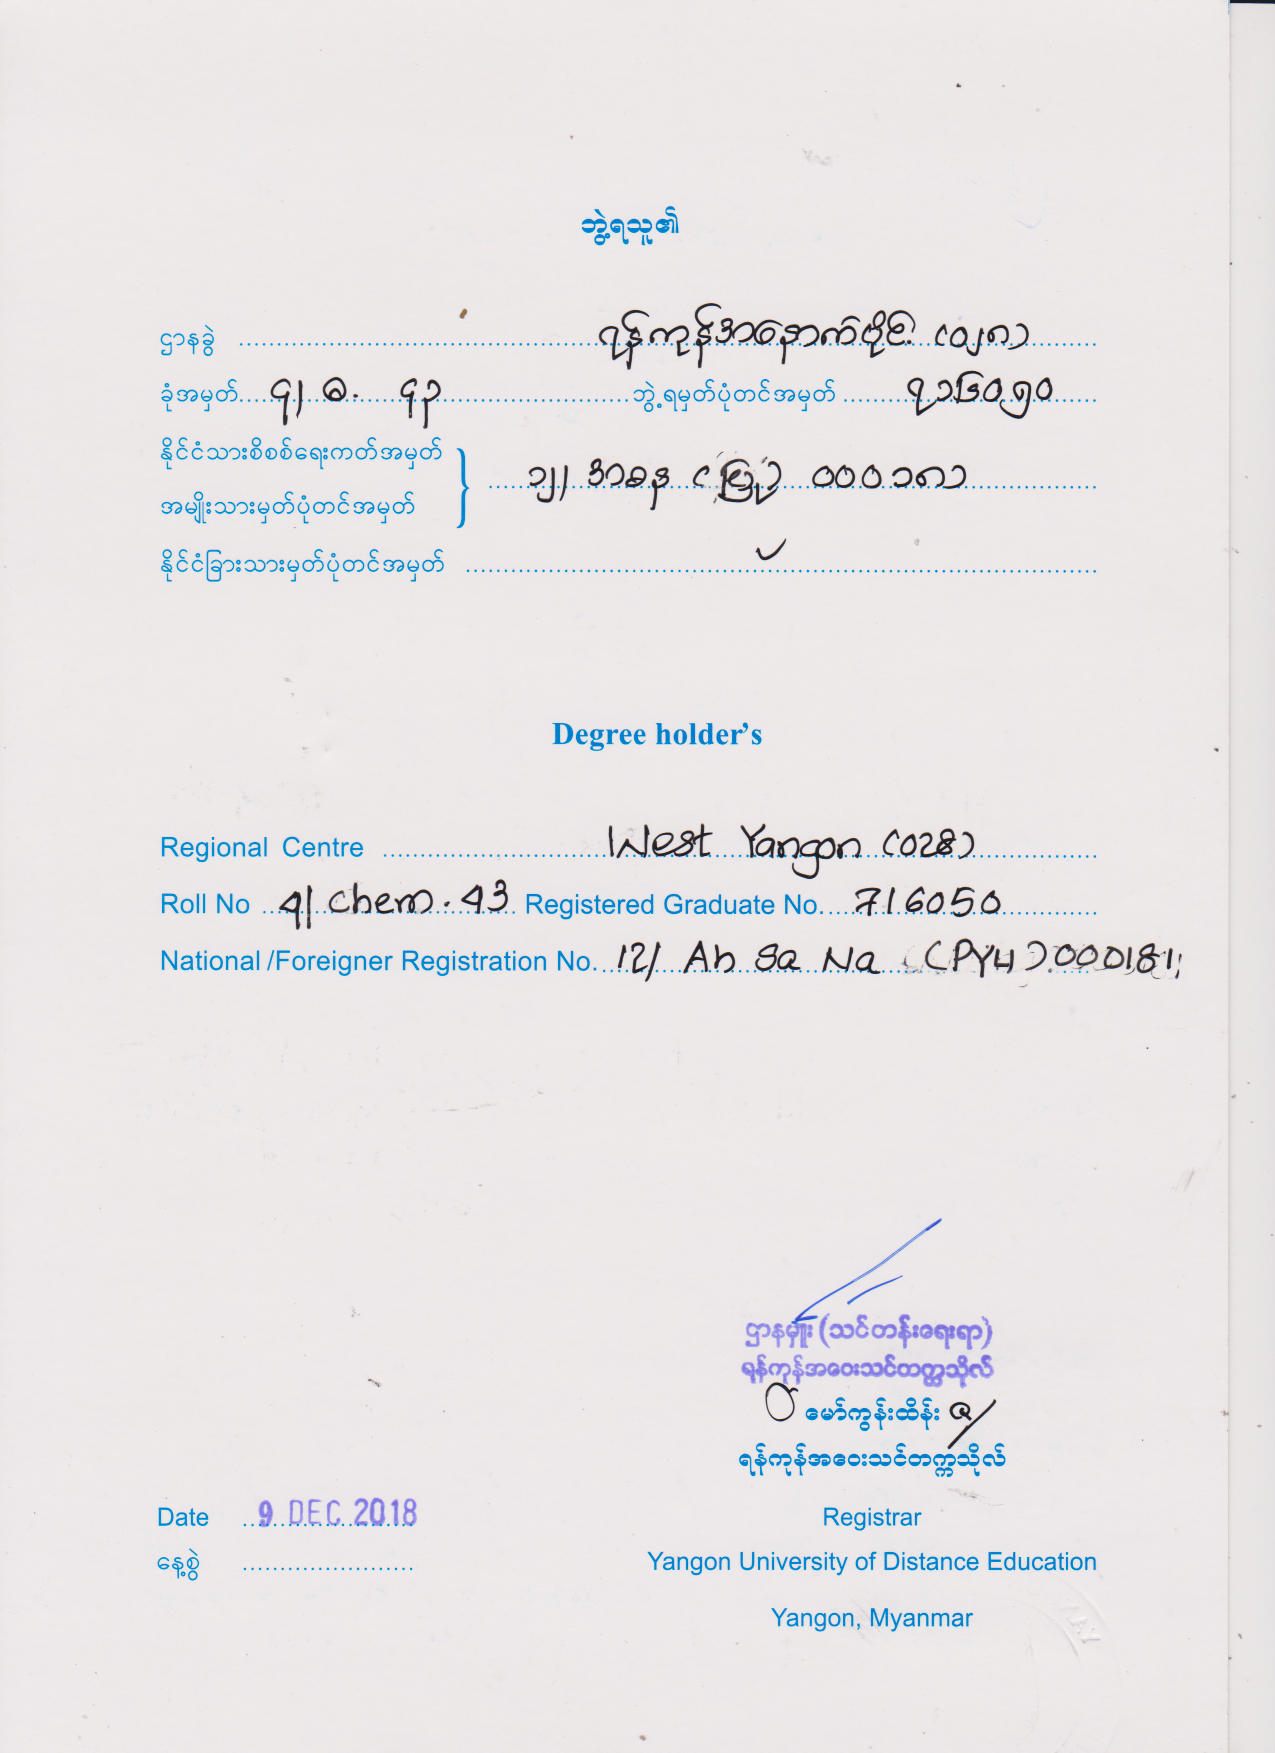 ဘွဲ့ရသူ၏
ဌာနခွဲ ရန်ကုန်အနောက်ပိုင်း (၀၂၈)
ခုံအမှတ် ၄/ ဓ. ၄၃ ဘွဲ့ရမှတ်ပုံတင်အမှတ် ၇၁၆၀၅၀
နိုင်ငံသားစိစစ်ရေးကတ်အမှတ်
၁၂/ အစန (ပြု) ၀၀၀၁၈၁
အမျိုးသားမှတ်ပုံတင်အမှတ်
နိုင်ငံခြားသားမှတ်ပုံတင်အမှတ်
Degree holder's
Regional Centre West Yangon (028)
Roll No 4/ Chem. 43 Registered Graduate No. 716050
National /Foreigner Registration No. 12/ Ah Sa Na (PYU) 000181
ဌာနမှူး (သင်တန်းရေးရာ)
ရန်ကုန်အဝေးသင်တက္ကသိုလ်
မော်ကွန်းထိန်း
ရန်ကုန်အဝေးသင်တက္ကသိုလ်
Date 9 DEC 2018
Registrar
နေ့စွဲ
Yangon University of Distance Education
Yangon, Myanmar